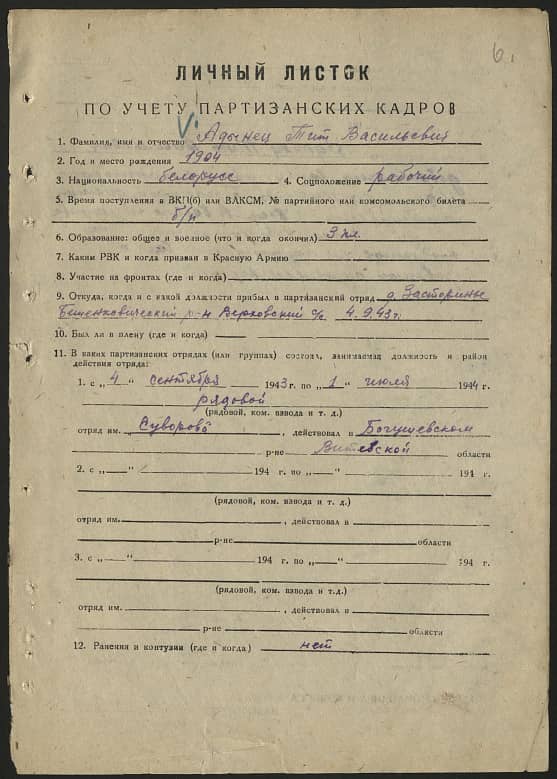 6.
ЛИЧНЫЙ ЛИСТОК
ПО УЧЕТУ ПАРТИЗАНСКИХ КАДРОВ
1. Фамилия, имя и отчество Адынец Тит Васильевич
2. Год и место рождения 1904
3. Национальность белорусс 4. Соцположение рабочий
5. Время поступления в ВКП(б) или ВЛКСМ, № партийного или комсомольского билета
б/п
6. Образование: общее и военное (что и когда окончил) 3 кл.
7. Каким РВК и когда призван в Красную Армию
8. Участие на фронтах (где и когда)
9. Откуда, когда и с какой должности прибыл в партизанский отряд д. Засторинье
Бешенковический р-н Верховский с/с 4.9.43 г.
10. Был ли в плену (где и когда)
11. В каких партизанских отрядах (или группах) состоял, занимаемая должность и район
действия отряда:
1. с „4" сентября 1943 г. по „1" июля 1944 г.
рядовой
(рядовой, ком. взвода и т. д.)
отряд им. Суворова, действовал в Богушевском
р-не Витебской области
2. с „ " 194 г. по „ " 194 г.
(рядовой, ком. взвода и т. д.)
отряд им. , действовал в
р-не области
3. с „ " 194 г. по „ " 194 г.
(рядовой, ком. взвода и т.д.)
отряд им. , действовал в
р-не области
12. Ранения и контузии (где и когда) нет